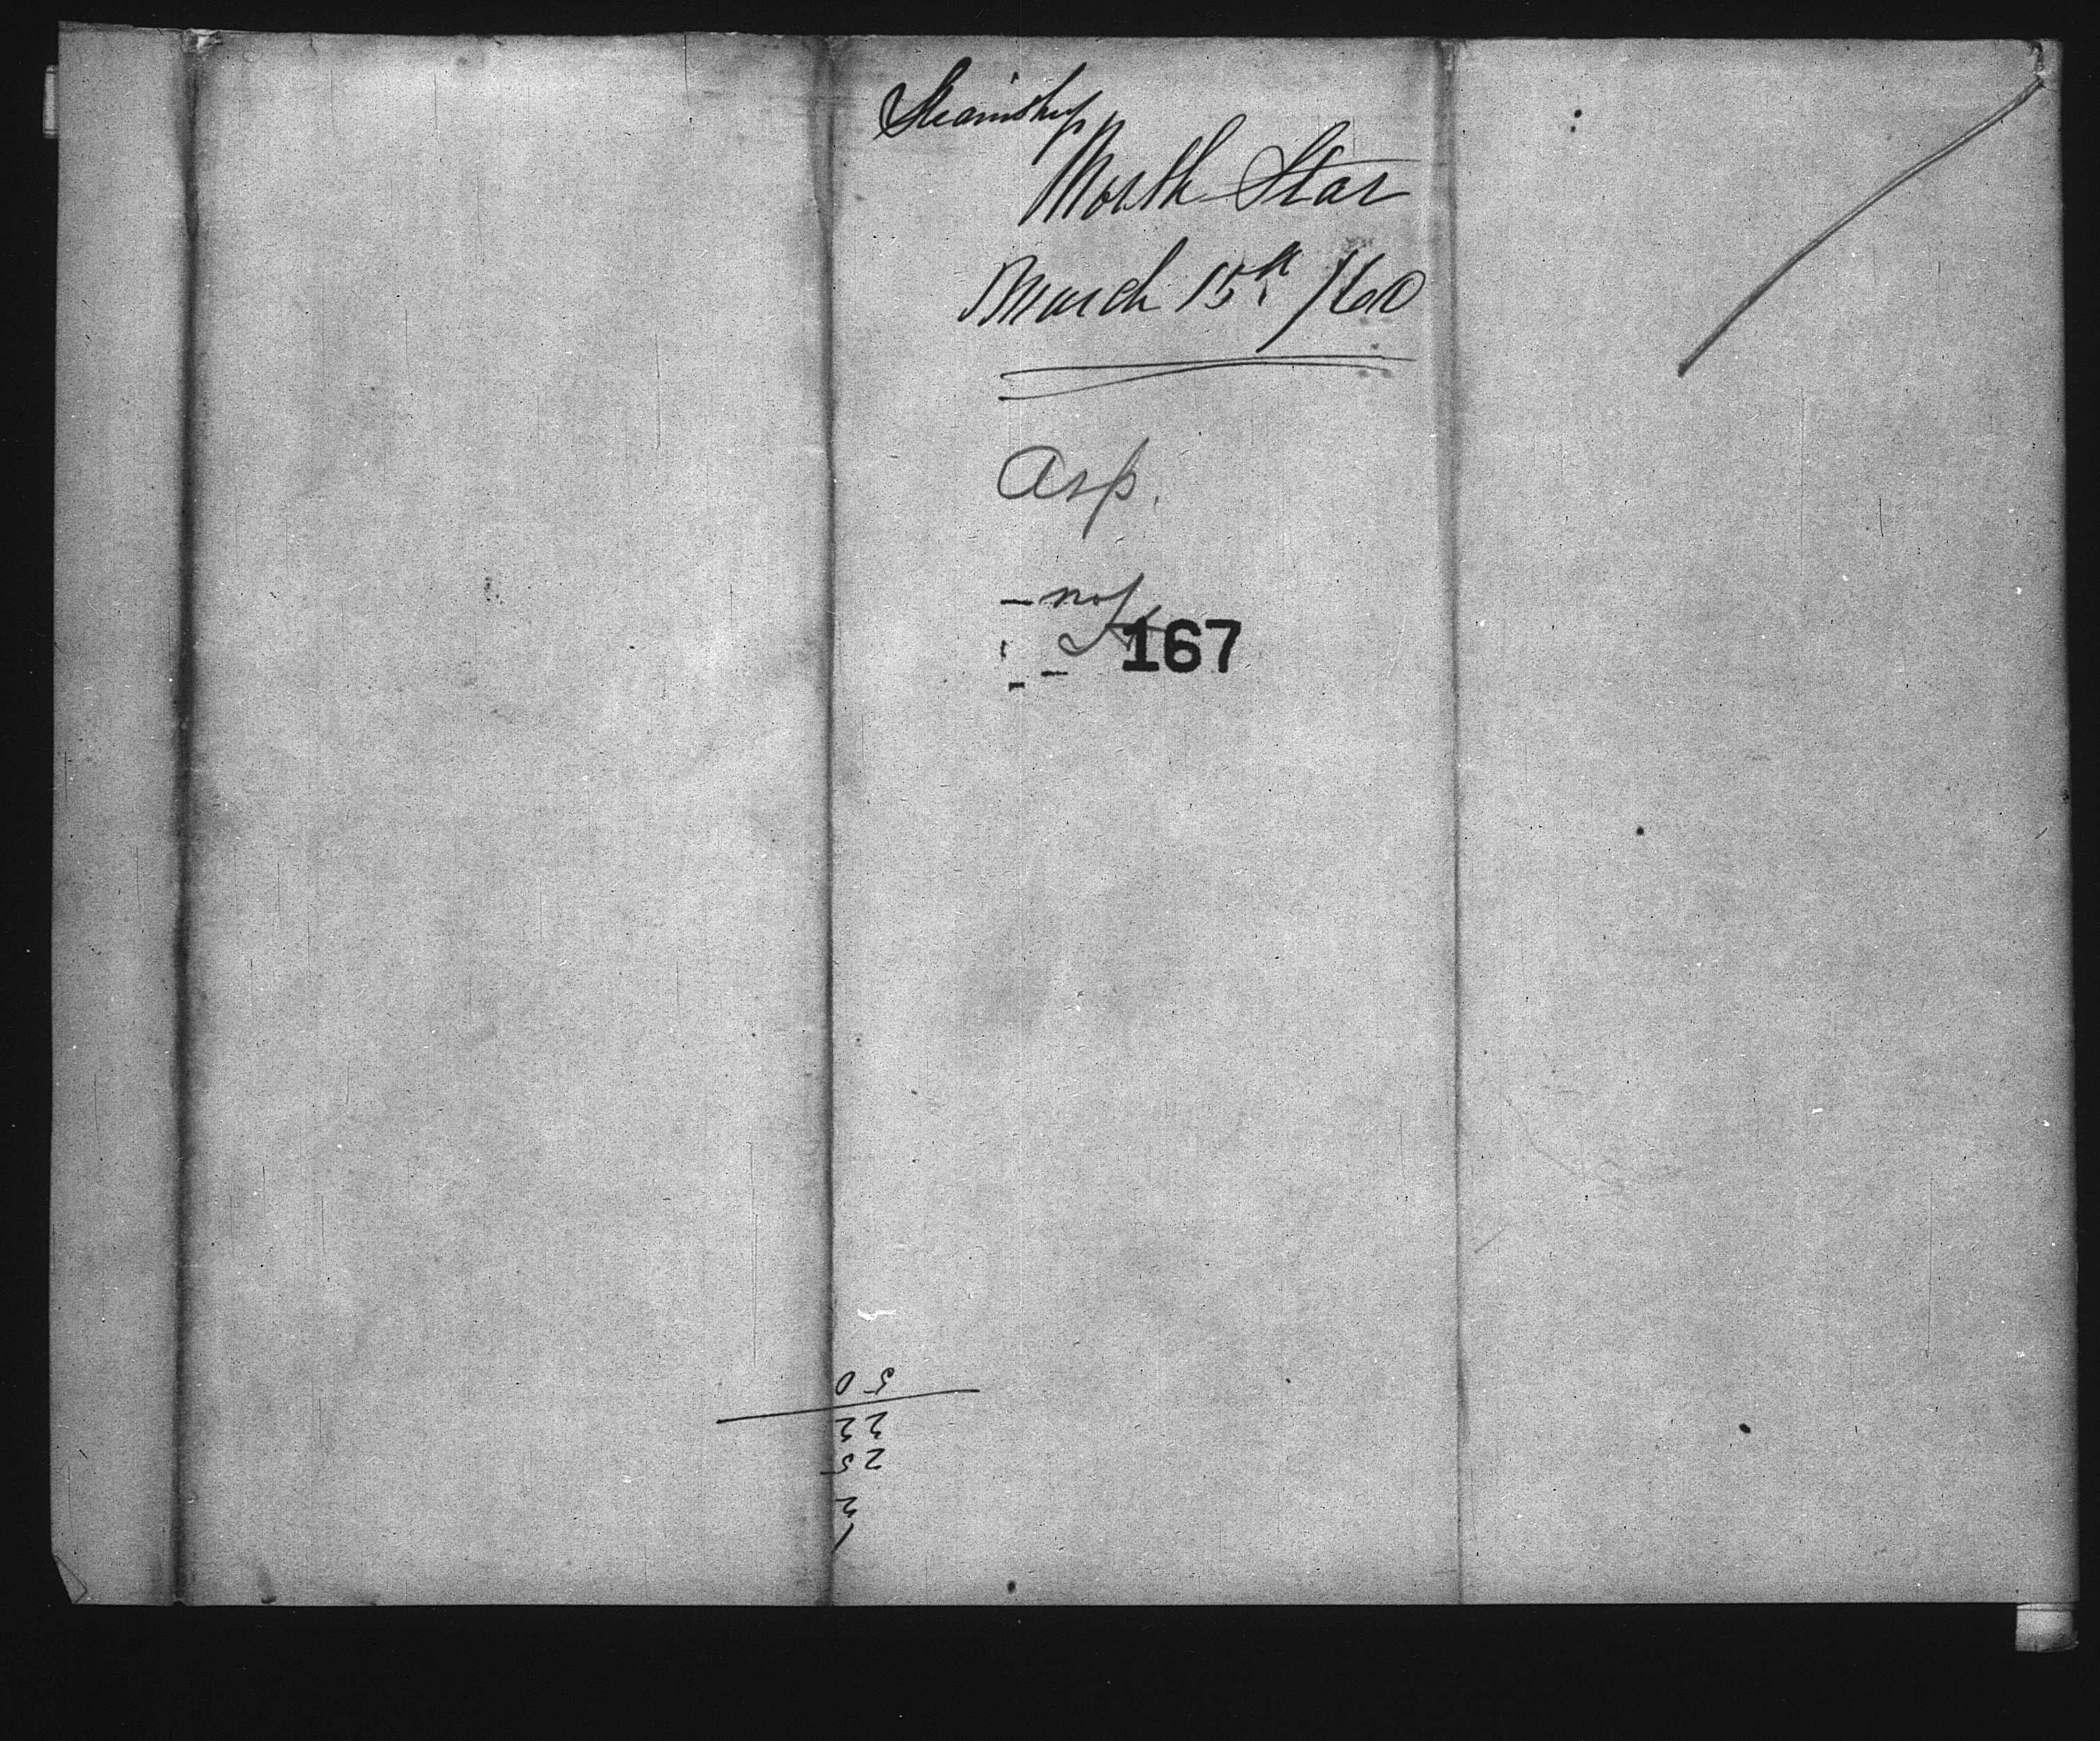 Steamship
North Star
March 15th /60
Asp.
167
50
22
25
2